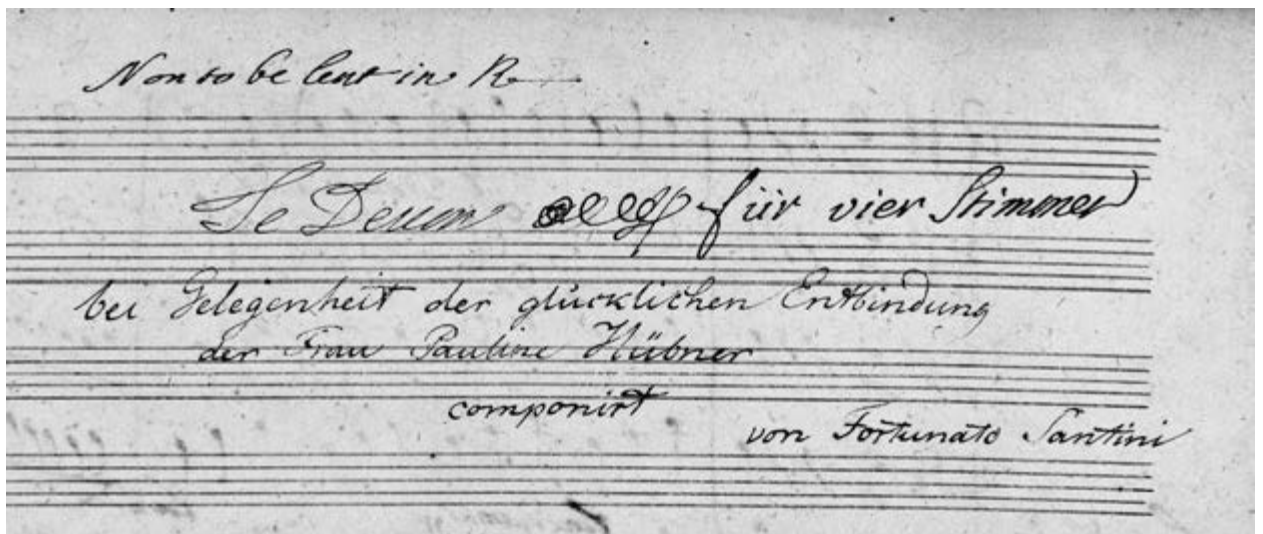 Non to be lent in R
Te Deum für vier Stimmen
bei Gelegenheit der glücklichen Entbindung
der Frau Pauline Hübner
componirt
von Fortunato Santini